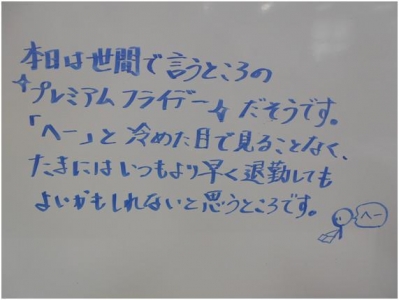 本日は世間で言うところの
☆プレミアムフライデー☆だそうです。
「へー」と冷めた目で見ることなく、
たまにはいつもより早く退勤しても
よいかもしれないと思うところです。
へー